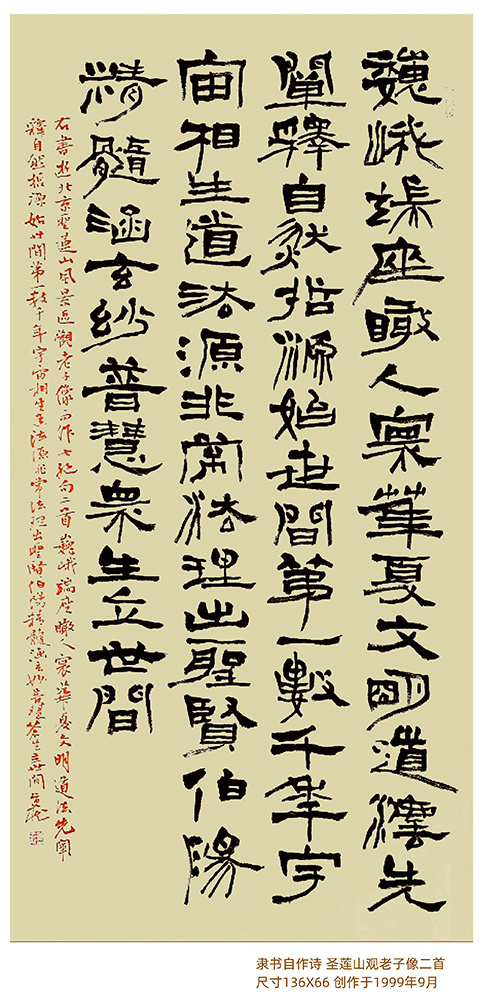 巍峨端座瞰人寰華夏文明道灋先
闡釋自然根源始世間第一數千年宇
宙相生道法源非常法理出聖賢伯陽
精髓涵玄妙普慧眾生立世間
右書遊北京聖蓮山風景區觀老子像而作七絕句二首巍峨端座瞰人寰華夏文明道法先闡
釋自然根源始世間第一數千年宇宙相生道法源非常法理出聖賢伯陽精髓涵玄妙普慧蒼生立世間
隶书自作诗 圣莲山观老子像二首
尺寸136X66 创作于1999年9月